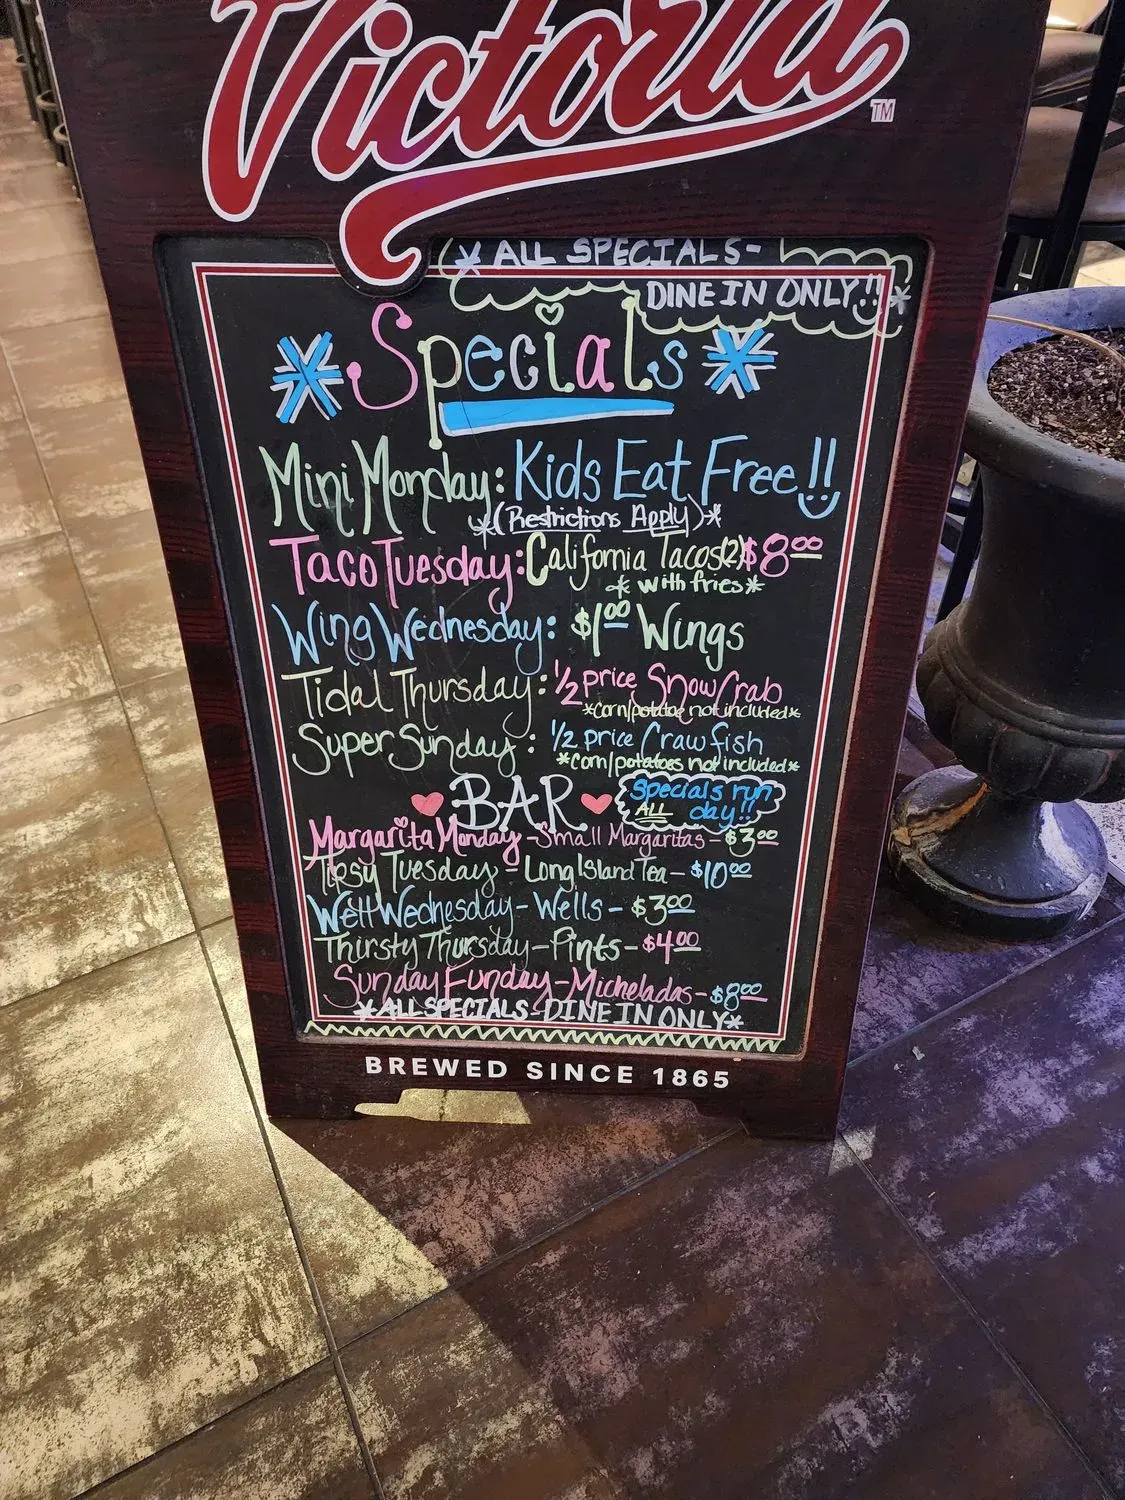 Victoria
TM
* ALL SPECIALS-
DINE IN ONLY!! *
* Specials *
Mini Monday: Kids Eat Free!!
*(Restrictions Apply)*
Taco Tuesday: California Tacos(2)$8.00
* with fries *
Wing Wednesday: $1.00 Wings
Tidal Thursday: 1/2 price Snow Crab
*corn/potatoe not included*
Super Sunday: 1/2 price Craw fish
*corn/potatoes not included*
BAR
Specials run
ALL day!!
Margarita Monday - Small Margaritas - $3.00
Tipsy Tuesday - Long Island Tea - $10.00
Well Wednesday - Wells - $3.00
Thirsty Thursday - Pints - $4.00
Sunday Funday - Micheladas - $8.00
*ALL SPECIALS-DINE IN ONLY*
BREWED SINCE 1865